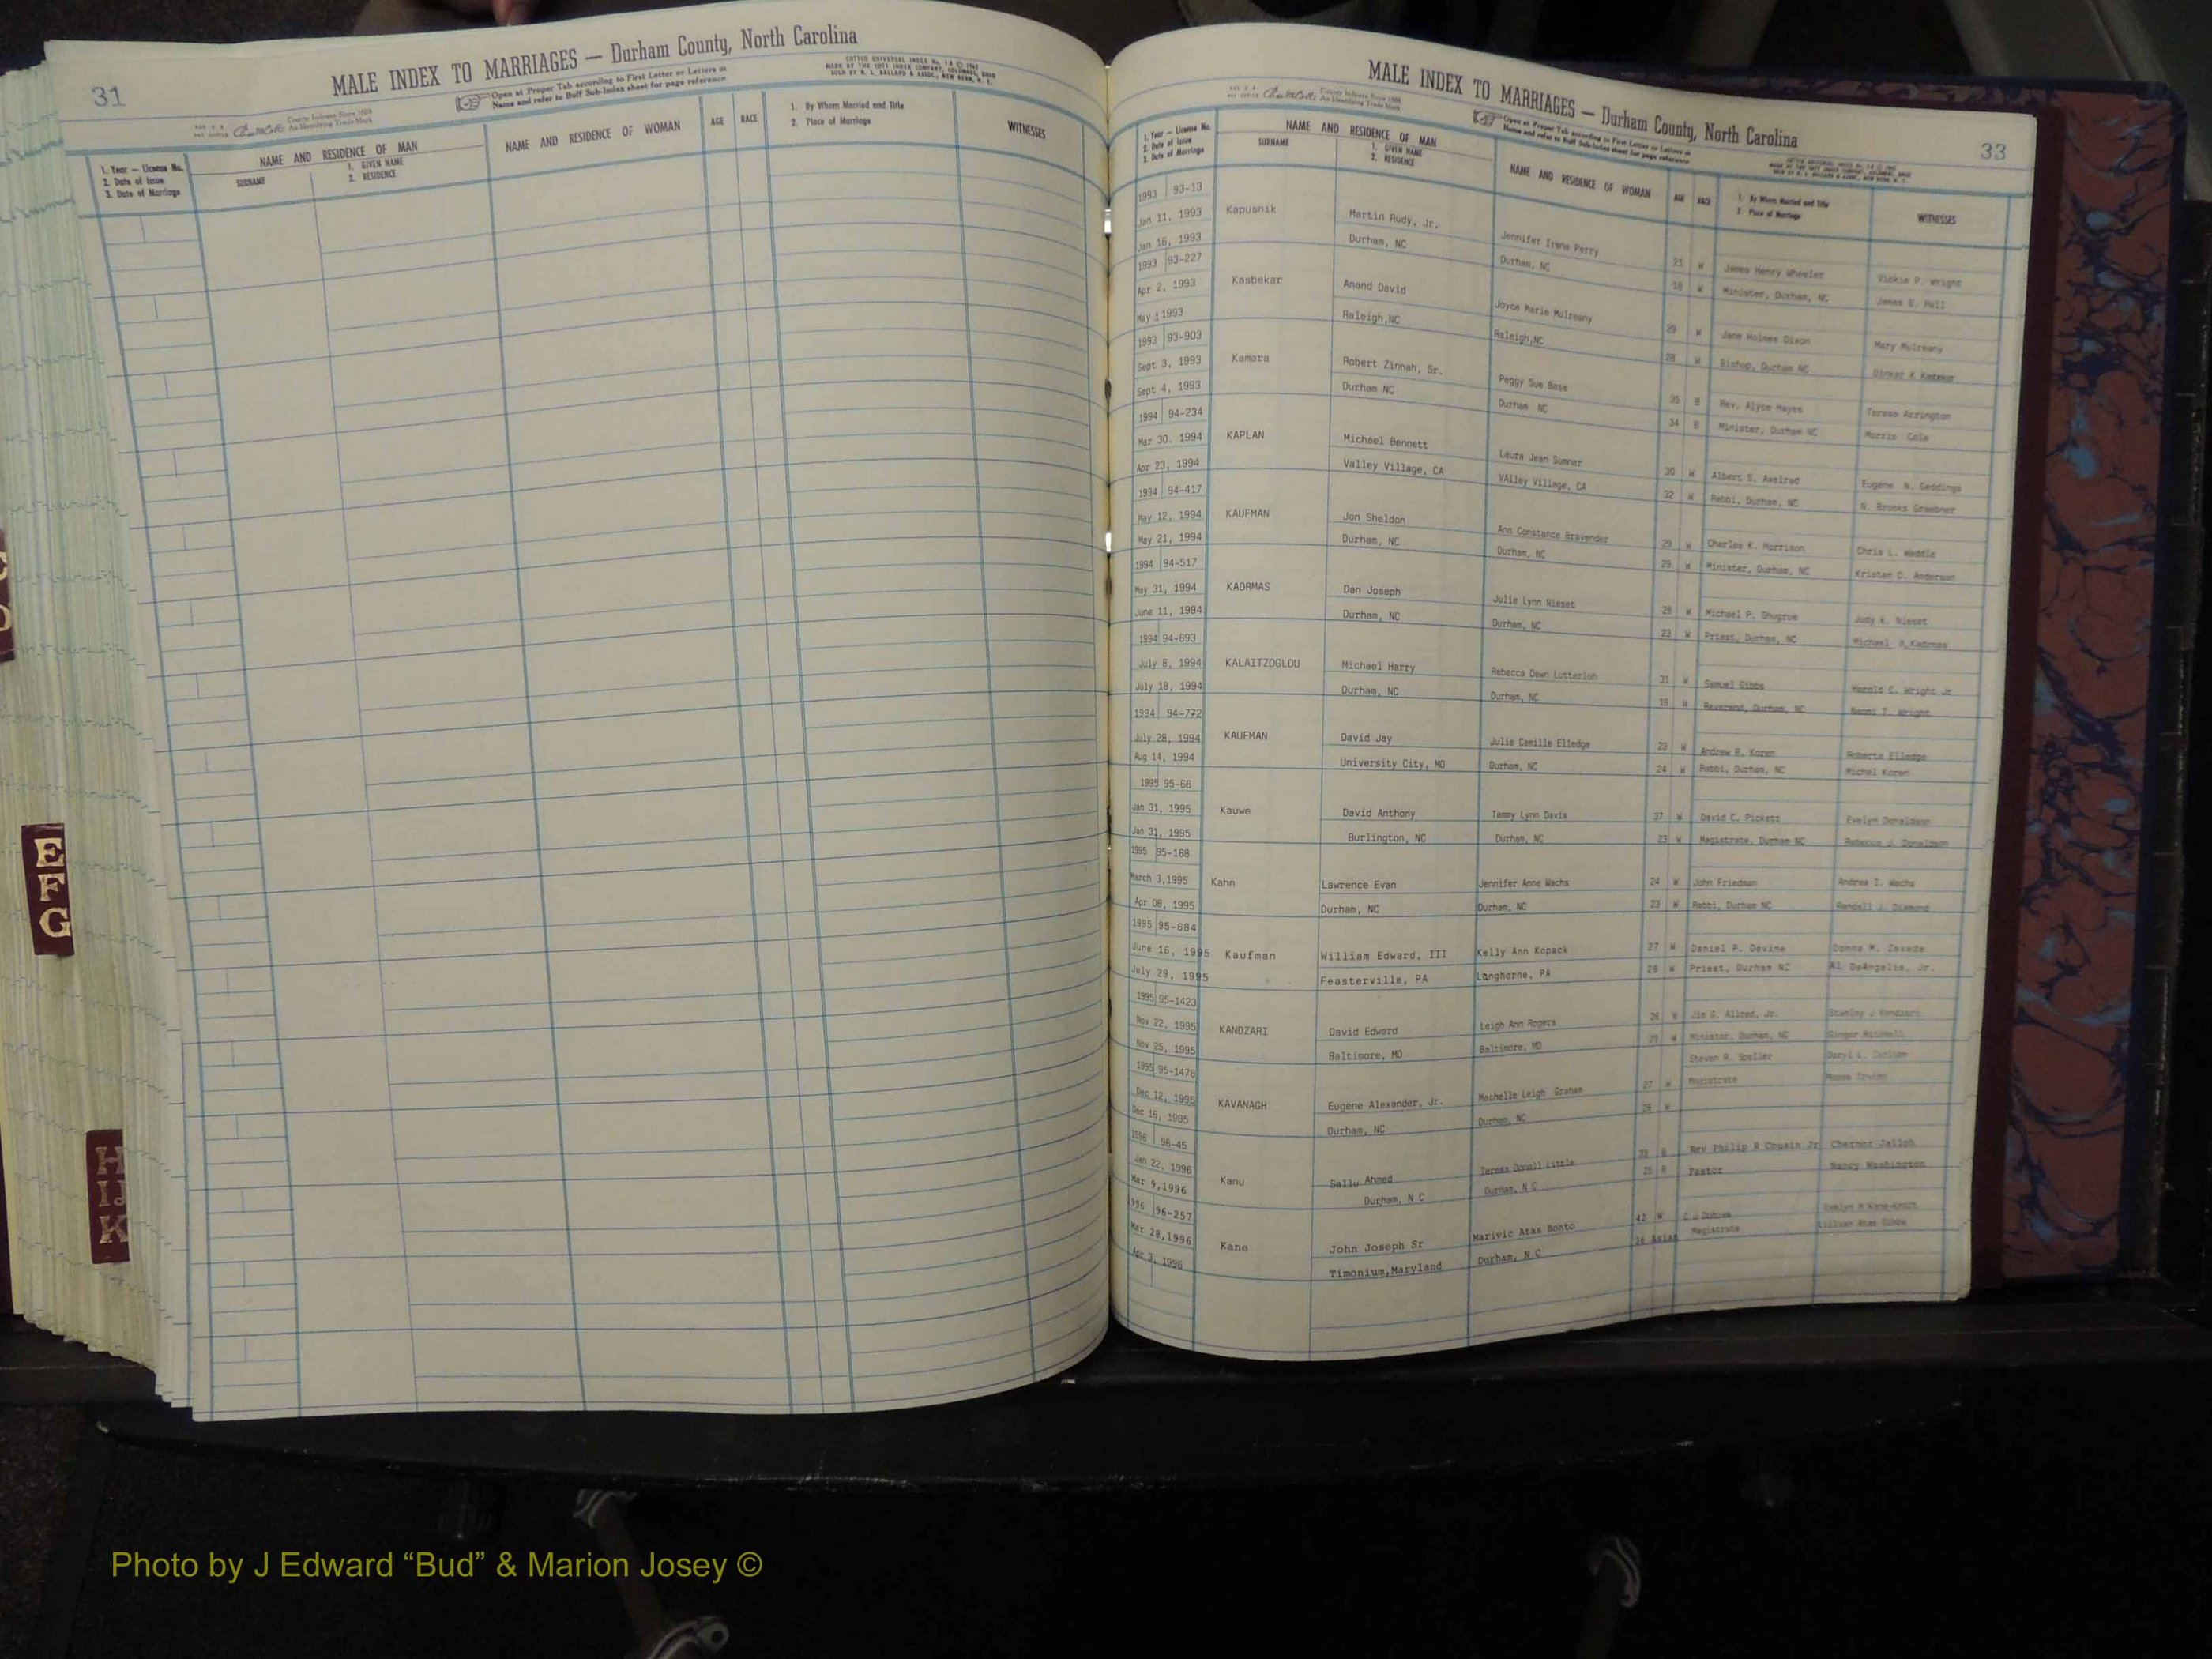 31
MALE INDEX TO MARRIAGES — Durham County, North Carolina
Open at Proper Tab according to First Letter or Letters of
Name and refer to Buff Sub-Index sheet for page reference
COTTCO UNIVERSAL INDEX No.
MADE BY THE COTT INDEX COMPANY, COLUMBUS, OHIO
SOLD BY
County Indexes Since 1888
An Identifying Trade Mark
1. Year — License No.
2. Date of Issue
3. Date of Marriage
NAME AND RESIDENCE OF MAN
SURNAME
1. GIVEN NAME
2. RESIDENCE
NAME AND RESIDENCE OF WOMAN
AGE
RACE
1. By Whom Married and Title
2. Place of Marriage
WITNESSES
E
F
G
H
IJ
K
MALE INDEX TO MARRIAGES — Durham County, North Carolina
Open at Proper Tab according to First Letter or Letters of
Name and refer to Buff Sub-Index sheet for page reference
33
1. Year — License No.
2. Date of Issue
3. Date of Marriage
NAME AND RESIDENCE OF MAN
SURNAME
1. GIVEN NAME
2. RESIDENCE
NAME AND RESIDENCE OF WOMAN
AGE
RACE
1. By Whom Married and Title
2. Place of Marriage
WITNESSES
1993 93-13
Jan 11, 1993 Kapusnik Martin Rudy, Jr. Jennifer Irene Perry 21 W James Henry Wheeler Vickie P. Wright
Jan 16, 1993 Durham, NC Durham, NC 18 W Minister, Durham, NC James B. Hull
1993 93-227
Apr 2, 1993 Kasbekar Anand David Joyce Marie Mulreany 29 W Jane Holmes Dixon Mary Mulreany
May 1 1993 Raleigh,NC Raleigh,NC 28 W Bishop, Durham NC Dinker K
1993 93-903
Sept 3, 1993 Kamara Robert Zinnah, Sr. Peggy Sue Bass 35 B Rev. Alyce Hayes Teresa Arrington
Sept 4, 1993 Durham NC Durham NC 34 B Minister, Durham NC Morris Cole
1994 94-234
Mar 30. 1994 KAPLAN Michael Bennett Laura Jean Sumner 30 W Albert S. Axelrad Eugene N. Geddings
Apr 23, 1994 Valley Village, CA VAlley Village, CA 32 W Rabbi, Durham, NC N. Brooks Graebner
1994 94-417
May 12, 1994 KAUFMAN Jon Sheldon Ann Constance Bravender 29 W Charles K. Morrison Chris L. Weddle
May 21, 1994 Durham, NC Durham, NC 29 W Minister, Durham, NC Kristen D. Anderson
1994 94-517
May 31, 1994 KADRMAS Dan Joseph Julie Lynn Nieset 26 W Michael P. Shugrue Judy K. Nieset
June 11, 1994 Durham, NC Durham, NC 23 W Priest, Durham, NC Michael Kadrmas
1994 94-693
July 8, 1994 KALAITZOGLOU Michael Harry Rebecca Dawn Lutterloh 31 W Samuel Gibbs Harold C. Wright Jr
July 18, 1994 Durham, NC Durham, NC 18 W Reverend, Durham, NC Naomi T. Wright
1994 94-772
July 28, 1994 KAUFMAN David Jay Julie Camille Elledge 23 W Andrew R. Koren Roberta Elledge
Aug 14, 1994 University City, MO Durham, NC 24 W Rabbi, Durham, NC Michel Koren
1995 95-66
Jan 31, 1995 Kauwe David Anthony Tammy Lynn Davis 37 W David C. Pickett Evelyn Donaldson
Jan 31, 1995 Burlington, NC Durham, NC 23 W Magistrate, Durham NC Rebecca J. Donaldson
1995 95-168
March 3,1995 Kahn Lawrence Evan Jennifer Anne Wachs 24 W John Friedman Andrea I. Wachs
Apr 08, 1995 Durham, NC Durham, NC 23 W Rabbi, Durham NC Randall J. Diamond
1995 95-684
June 16, 1995 Kaufman William Edward, III Kelly Ann Kopack 27 W Daniel P. Devine Donna M. Zavada
July 29, 1995 Feasterville, PA Langhorne, PA 28 W Priest, Durham NC Al DeAngelis, Jr.
1995 95-1423
Nov 22, 1995 KANDZARI David Edward Leigh Ann Rogers 26 W Jim G. Allred, Jr. Stanley J Kandzari
Nov 25, 1995 Baltimore, MO Baltimore, MD 25 W Minister, Durham, NC Ginger Mitchell
1995 95-1478 Steven R. Speller Daryl L. Carlson
Dec 12, 1995 KAVANAGH Eugene Alexander, Jr. Machelle Leigh Graham 27 W Magistrate
Dec 16, 1995 Durham, NC Durham, NC 28 W
1996 96-45
Jan 22, 1996 Kanu Sallu Ahmed Teresa Donell Little 33 B Rev Philip R Cousin Jr Chernor Jalloh
Mar 9,1996 Durham, N C Durham, N C 25 B Pastor Nancy Washington
1996 96-257
Mar 28,1996 Kane John Joseph Sr Marivic Atas Bonto 42 W C J Dobies Evelyn R
Apr 3, 1996 Timonium,Maryland Durham, N.C 36 Asian Magistrate Lillian Gibbs
Photo by J Edward “Bud” & Marion Josey ©